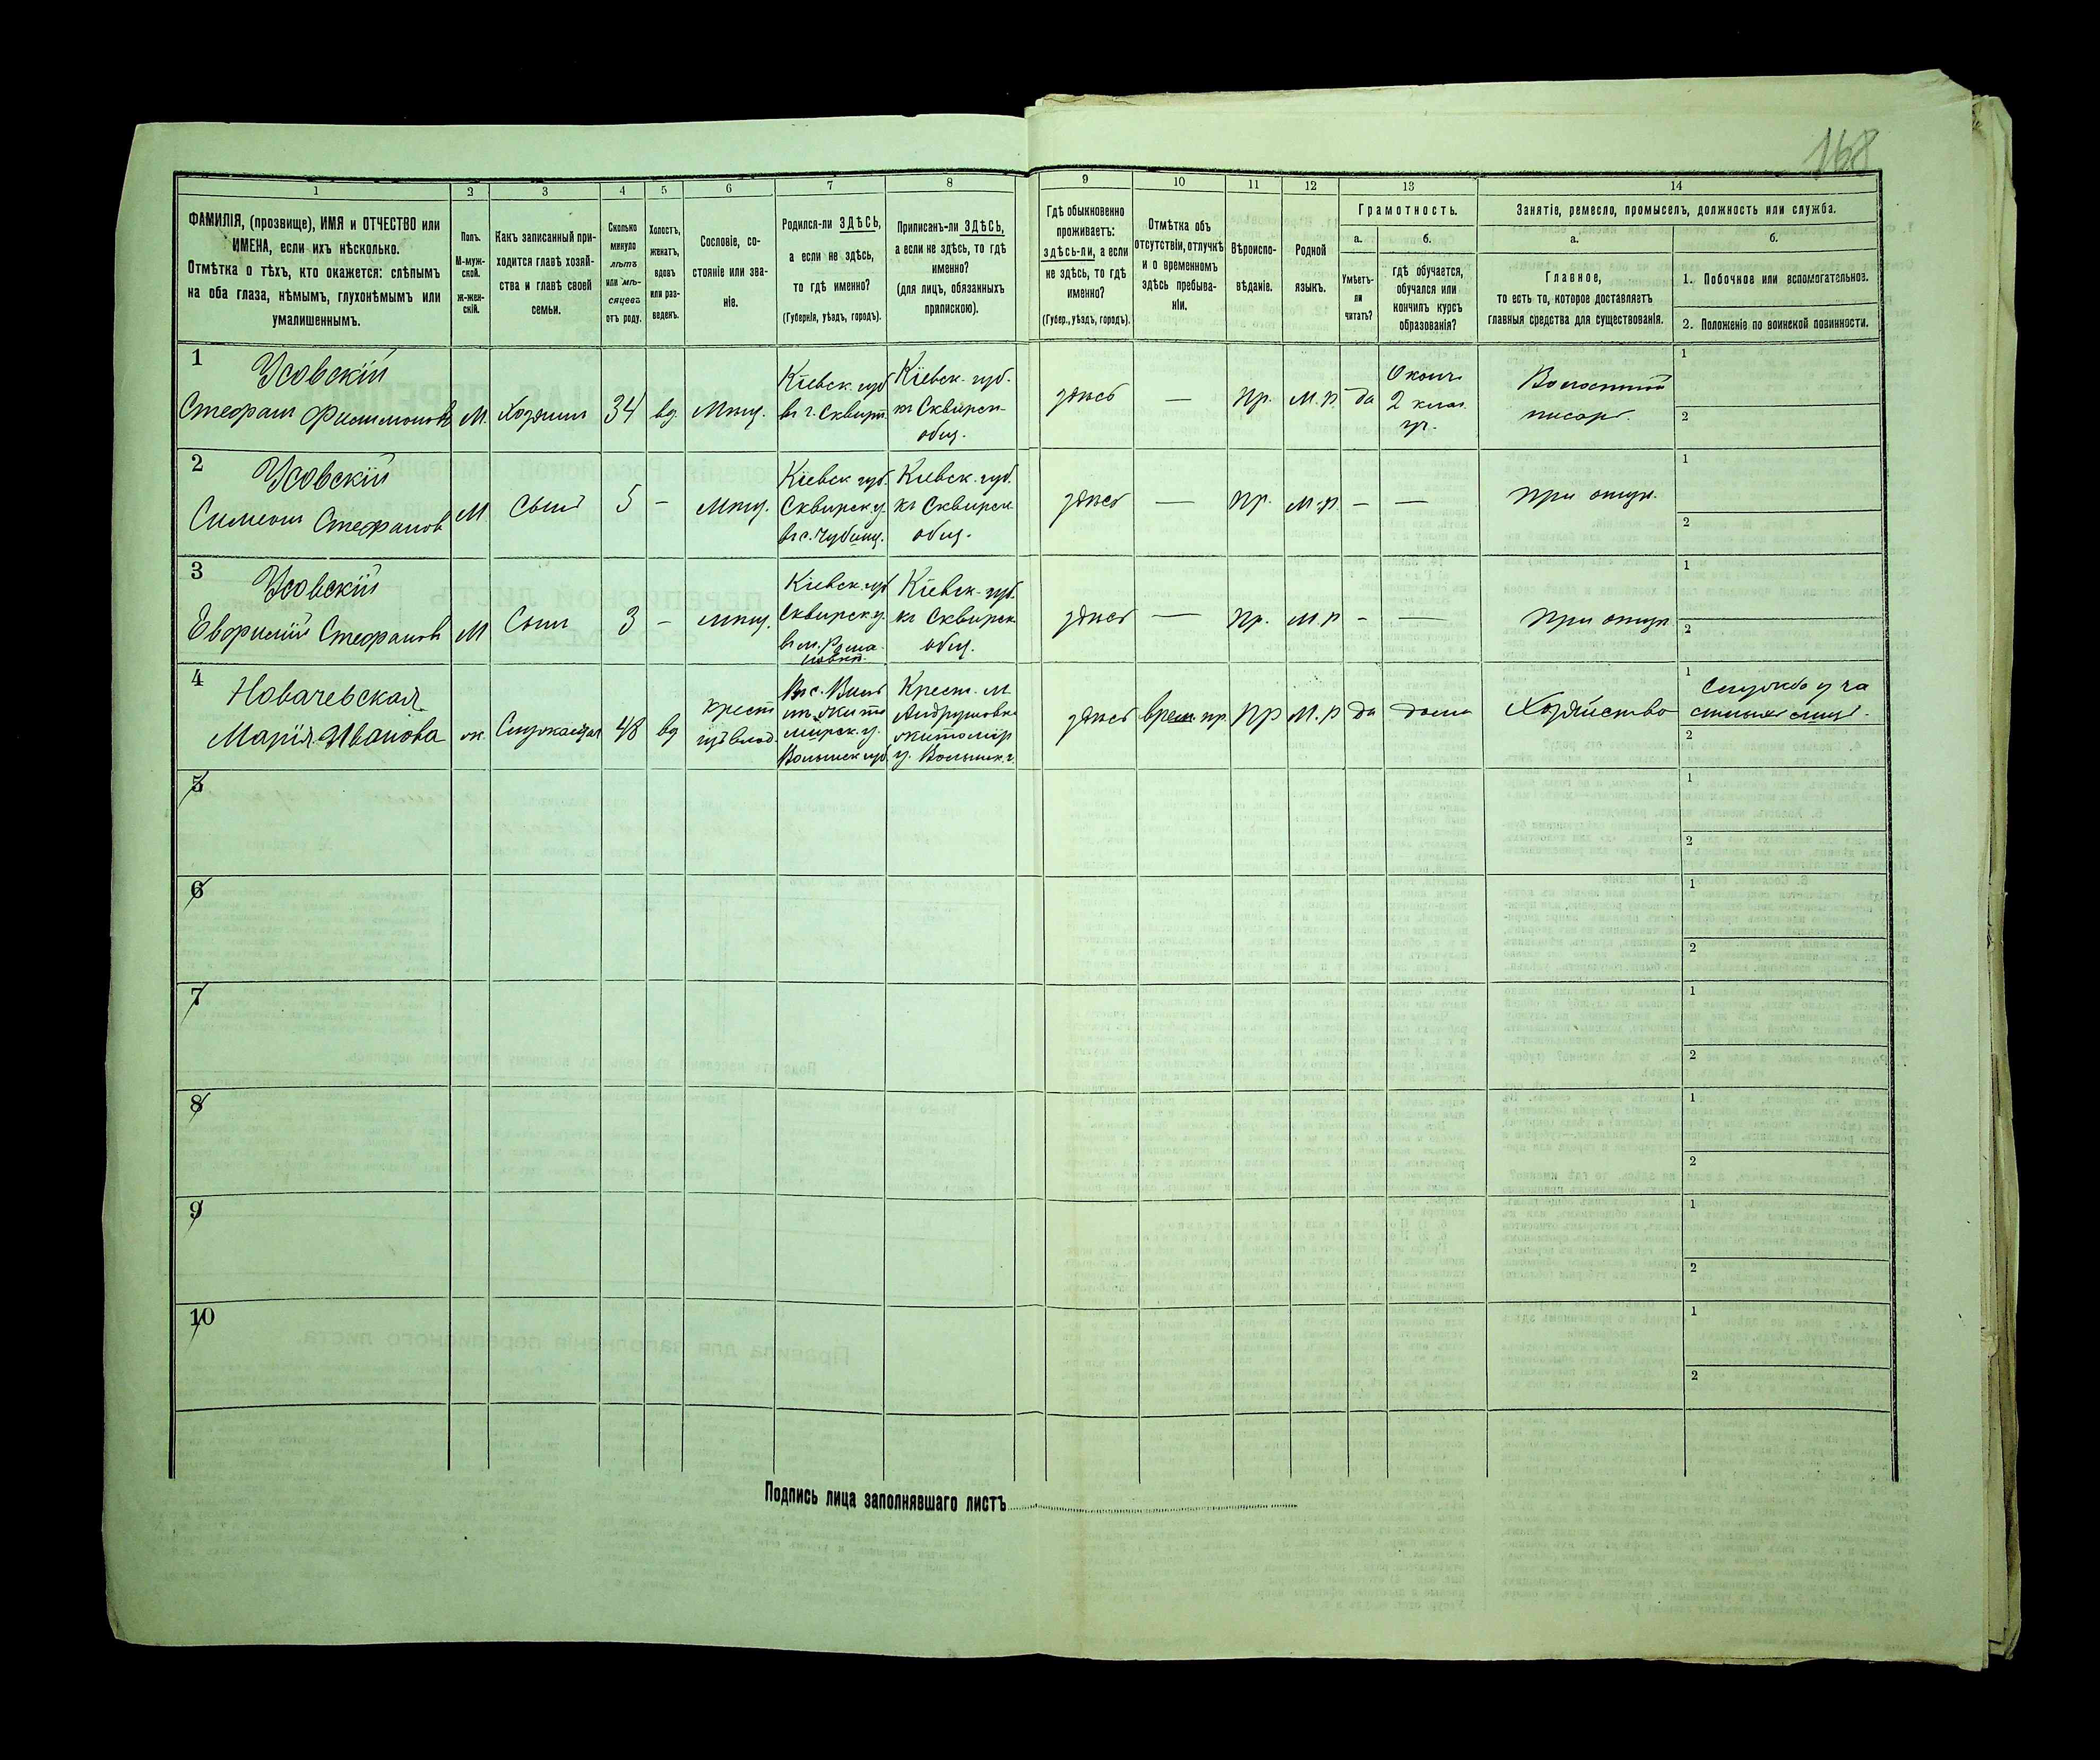 168
1
2
3
4
5
6
7
8
9
10
11
12
13
14
ФАМИЛІЯ, (прозвище), ИМЯ и ОТЧЕСТВО или
ИМЕНА, если ихъ нѣсколько.
Отмѣтка о тѣхъ, кто окажется: слѣпымъ
на оба глаза, нѣмымъ, глухонѣмымъ или
умалишеннымъ.
Полъ.
М-муж-
ской.
Ж-жен-
скій.
Какъ записанный при-
ходится главѣ хозяй-
ства и главѣ своей
семьи.
Сколько
минуло
лѣтъ
или мѣ-
сяцевъ
отъ роду.
Холостъ,
женатъ,
вдовъ
или раз-
веденъ.
Сословіе, со-
стояніе или зва-
ніе.
Родился-ли ЗДѢСЬ,
а если не здѣсь,
то гдѣ именно?
(Губернія, уѣздъ, городъ).
Приписанъ-ли ЗДѢСЬ,
а если не здѣсь, то гдѣ
именно?
(для лицъ, обязанныхъ
припискою).
Гдѣ обыкновенно
проживаетъ:
здѣсь-ли, а если
не здѣсь, то гдѣ
именно?
(Губер., уѣздъ, городъ).
Отмѣтка объ
отсутствіи, отлучкѣ
и о временномъ
здѣсь пребыва-
ніи.
Вѣроиспо-
вѣданіе.
Родной
языкъ.
Грамотность.
а.
Умѣетъ-
ли
читать?
б.
гдѣ обучается,
обучался или
кончилъ курсъ
образованія?
Занятіе, ремесло, промыселъ, должность или служба.
а.
Главное,
то есть то, которое доставляетъ
главныя средства для существованія.
б.
1. Побочное или вспомогательное.
2. Положеніе по воинской повинности.
1
Усовскій
Стефанъ Филимоновъ
М.
Хозяинъ
34
вд.
Мѣщ.
Кіевск. губ
въ г. Сквирѣ.
Кіевск. губ.
къ Сквирск.
общ.
здѣсь
—
Пр.
М. р.
да
Оконч.
2 клас.
уч.
Волостной
писарь.
1
2
2
Усовскій
Симеонъ Стефановъ
М
Сынъ
5
-
Мѣщ.
Кіевск губ.
Сквирск. у.
Кіевск. губ.
къ Сквирск
общ.
здѣсь
—
Пр.
М. р.
—
—
При отцѣ.
1
2
3
Усовскій
Стефановъ
М
Сынъ
3
-
мѣщ.
Кіевск. губ
Сквирск у.
въ м. Рома-
новкѣ.
Кіевск. губ.
къ Сквирск.
общ.
здѣсь
—
Пр.
М. р
-
—
При отцѣ
1
2
4
Новачевская
Марія Иванова
ж.
Служащая
48
вд
крест
изъ влад.
Житo
мирск. у.
Волынск губ.
Крест. м.
Андрушовк.
Житомір
у. Волынск. г.
здѣсь
врем. пр.
Пр
М. р
да
дома
Хозяйство
1
Служба у ча
стныхъ лицъ.
2
5
1
2
6
1
2
7
1
2
8
1
2
9
1
2
10
1
2
Подпись лица заполнявшаго листъ